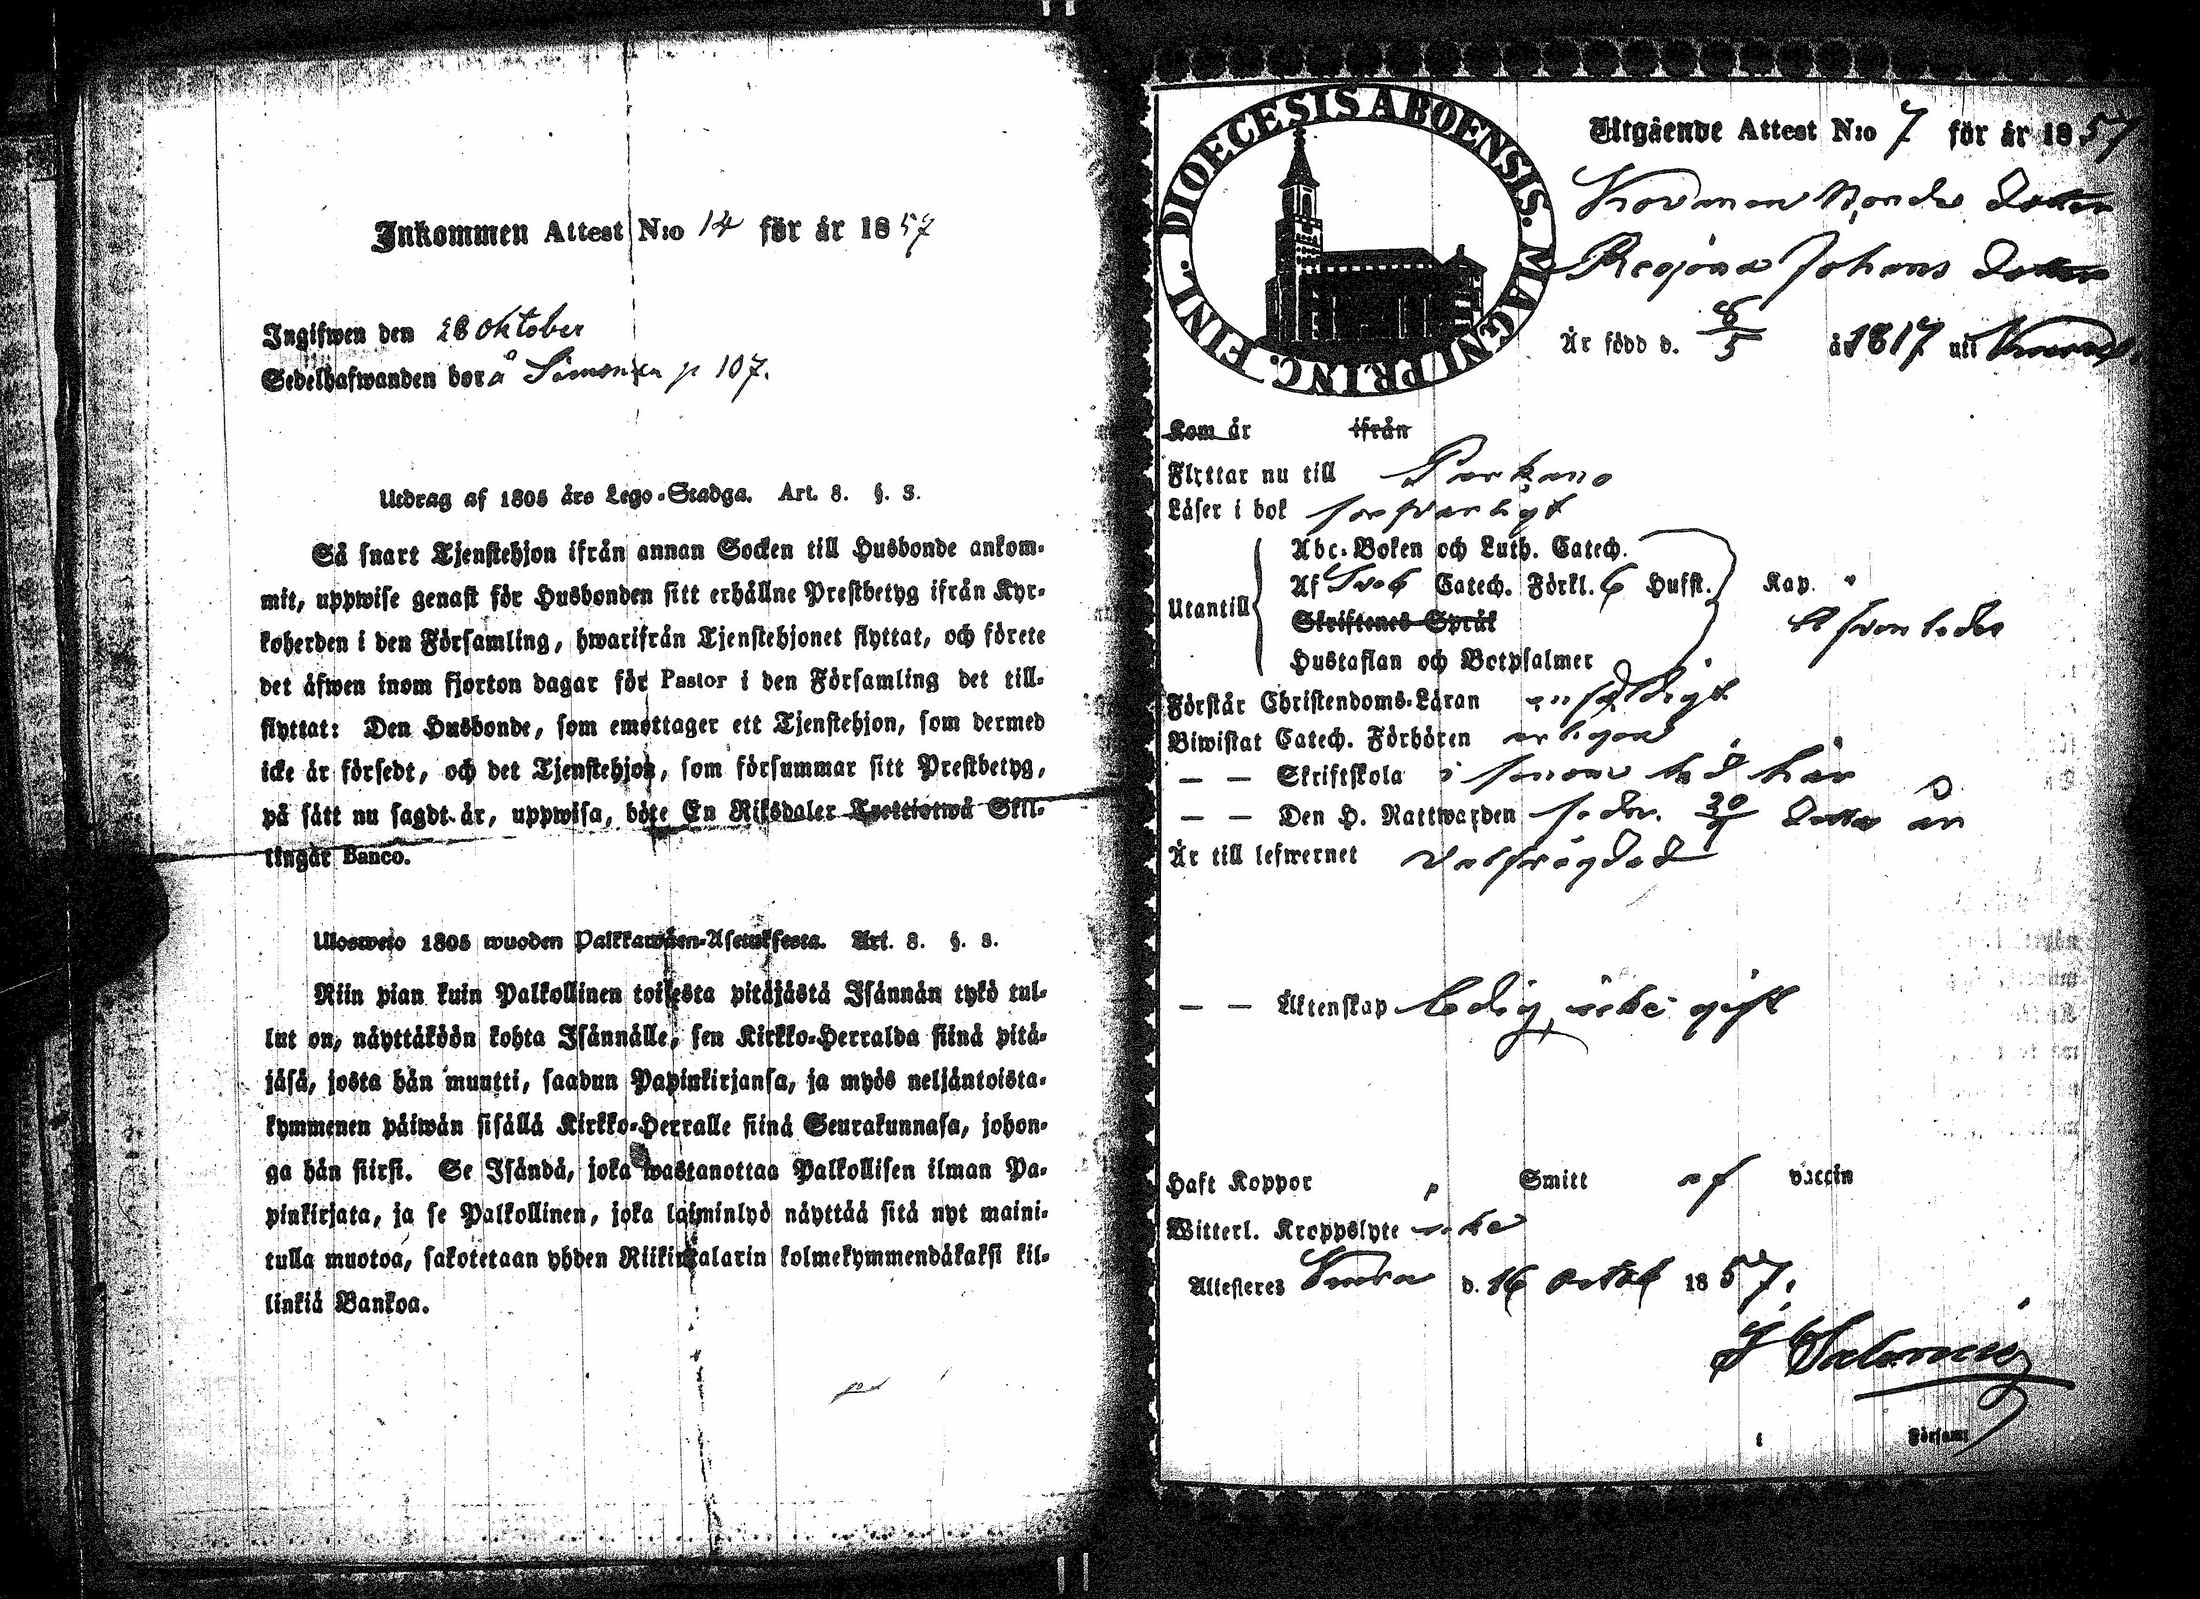 Inkommen Attest N:o 14 för år 1857
Ingifwen den 28 oktober
Sedelhafwanden bor å Simonen p 107.
Utdrag af 1805 års Lego-Stadga. Art. 8. §. 3.
Så snart Tjenstehjon ifrån annan Socken till Husbonde ankom-
mit, uppwise genast för Husbonden sitt erhållne Prestbetyg ifrån Kyr-
koherden i den Församling, hwarifrån Tjenstehjonet flyttat, och förete
det äfwen inom fjorton dagar för Pastor i den Församling det till-
flyttat: Den Husbonde, som emottager ett Tjenstehjon, som dermed
icke är försedt, och det Tjenstehjon, som försummar sitt Prestbetyg,
på sätt nu sagdt är, uppwisa, böte En Riksdaler Trettiotwå Skil-
lingar Banco.
Ulosweto 1805 wuoden Palkkawäen-Asetuksesta. Art. 8. §. 3.
Niin pian kuin Palkollinen toisesta pitäjästä Isännän tykö tul-
lut on, näyttäköön kohta Isännälle, sen Kirkko-Herralda siinä pitä-
jäsä, josta hän muutti, saadun Papinkirjansa, ja myös neljäntoista-
kymmenen päiwän sisällä Kirkko-Herralle siinä Seurakunnasa, johon-
ga hän siirsi. Se Isändä, joka wastanottaa Palkollisen ilman Pa-
pinkirjata, ja se Palkollinen, joka laiminlyö näyttää sitä nyt maini-
tulla muotoa, sakotetaan yhden Riikintalarin kolmekymmendäkaksi kil-
linkiä Bankoa.
DIOECESIS ABOENSIS. MAGNI PRINC. FINL.
Utgående Attest N:o 7 för år 1857
bonde Dotter
Regina Johans Dotter
Är född d. 8/5 år 1817 uti
Kom år ifrån
Flyttar nu till Parkano
Läser i bok försvarligt
Utantill
Abc-Boken och Luth. Catech.
Af Sveb Catech. Förkl. 6 Hufst. Kap.
Skriftenes Språk
Hustaflan och Botpsalmer
Förstår Christendoms-Läran enfaldigt
Biwistat Catech. Förhören årligen
— — Skriftskola i här
— — Den H. Nattwarden sedn. 30/ Detta år
Är till lefwernet välfrägdad
— — Äktenskap ledig, icke gift
Haft Koppor Smitt af vaccin
Witterl. Kroppslyte icke
Attesteres d. 16 octob 1857.
i Församl